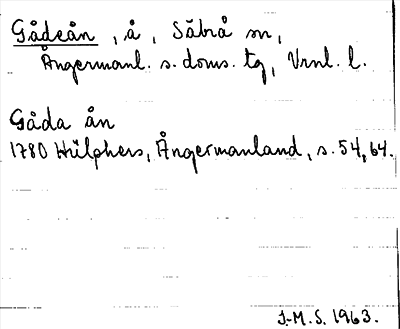 Gådeån, å, Säbrå sn,
Ångermanl. s. doms. tg, Vrnl. l.
Gåda ån
1780 Hülphers, Ångermanland, s. 54, 64.
J-M. S. 1963.